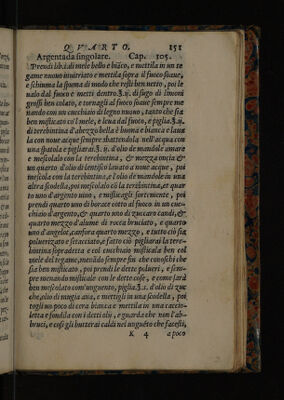 QVARTO. 151
Argentada singolare. Cap. 105.
Prendi lib.i.di mele bello e biãco, e mettila in un te
game nuouo inuitriato e mettila sopra il fuoco soaue,
e schiuma la spuma di modo che resti ben netto, poi le
ualo dal fuoco e metti dentro ℥.ij. di sugo di limoni
grossi ben colato, e tornagli al fuoco soaue sempre me
nando con un cucchiaio di legno nuouo, tanto che sia
ben misticato col mele, e leua dal fuoco, e piglia.℥.ij.
di terebintina d'abezzo bella e buona e bianca e laua
la con noue acque sempre sbattendola nell'acqua con
una spatola e pigliarai.℥.ij. d'olio de mandole amare
e mescolalo con la terebintina, & mezza oncia &
un quarto d'olio di lentisco lauato a noue acque, poi
mescola con la terebintina, e l'olio de mandole in una
altra scodella, poi mescolalo cõ la terebintina, et quar
to uno d'argento uiuo, e misticagli sortemente, poi
prendi quarto uno di borace cotto al fuoco in un cuc-
chiaio d'argento, & quarto uno di zuccaro candi, &
quarto mezzo d'alume di rocca bruciato, e quarto
uno d'angelot, canfora quarto mezzo, e tutto ciò sia
poluerizato e setacciato, e fatto ciò pigliarai la tere-
bintina sopradetta e col cucchiaio misticala ben col
mele del tegame, menãdo sempre fin che conoschi che
sia ben misticato, poi prendi le dette polueri, e sem-
pre menando misticale con le dette cose, e come sarà
ben mescolato com'unguento, piglia.℥.i. d'olio di zuc
che, olio di mugia anà, e mettigli in una scodella, poi
togli un poco di cera bianca e mettila in una cazzo-
letta e fondila con i detti olij, e guarda che non l'ab-
bruci, e così gli butterai caldi nel unguẽto che facesti,
K 4 a poco